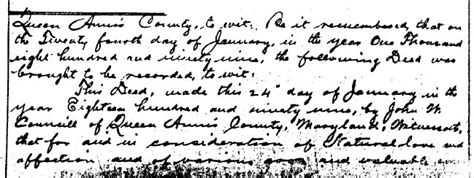 Queen Anne's County, to wit. Be it remembered, that on
the Twenty fourth day of January, in the year One Thousand
eight hundred and ninety nine, the following Deed was
brought to be recorded, to wit:
This Deed, made this 24" day of January in the
year Eighteen hundred and ninety nine, by John W.
Councill of Queen Anne's County, Maryland, Witnesseth,
that for and in consideration of Natural love and
affection and of various good and valuable